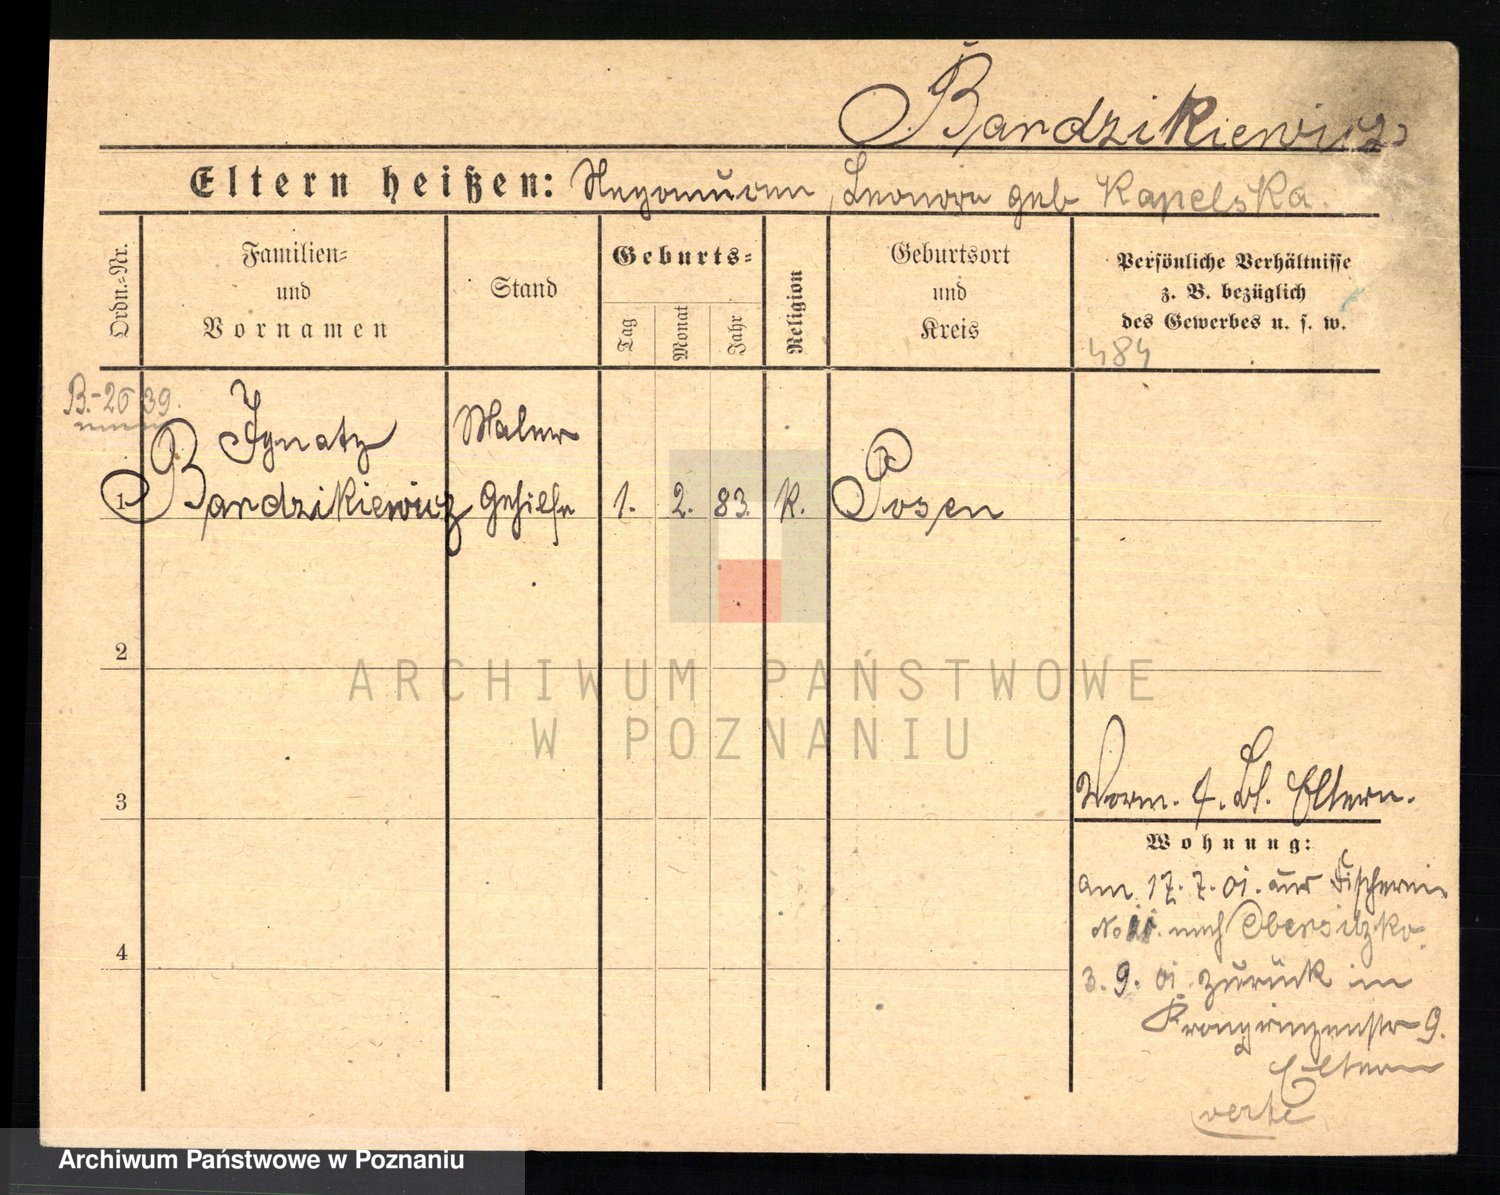 Bandzikiewicz
Eltern heißen: Nepomucen, Leonora geb Kapelska.
Ordn.-Nr.
Familien-
und
Vornamen
Stand
Geburts-
Tag
Monat
Jahr
Religion
Geburtsort
und
Kreis
Persönliche Verhältnisse
z. B. bezüglich
des Gewerbes u. s. w.
484
B.-26 39.
Ignatz Maler
1 Bandzikiewicz Gehilfe 1. 2. 83. K. Posen
2
ARCHIWUM PAŃSTWOWE
W POZNANIU
3
Worm. f. Bl. Eltern.
Wohnung:
am 17.7.01. aus Fischerei
No nach Obersitzko.
3.9.01. zurück in
Kronprinzenstr 9.
Eltern
verte
4
Archiwum Państwowe w Poznaniu